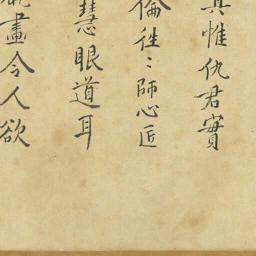 惟仇君實
倫往〻師心匠
慧眼道耳
畫令人欲